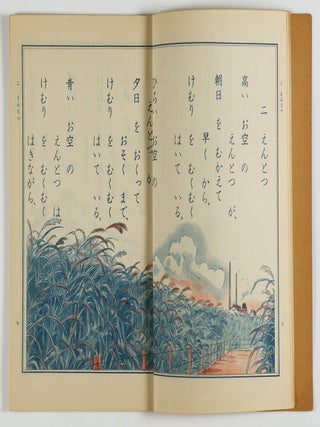 二 えんとつ
二 えんとつ
高い お空 の
えんとつ が、
朝日 を むかえて
早く から、
けむり を むくむく
はいて いる。
ひろい お空 の
えんとつ が
夕日 を おくって
おそく まで、
けむり を むくむく
はいて いる。
青い お空 の
えんとつ は
けむり を むくむく
はきながら、
二 えんとつ